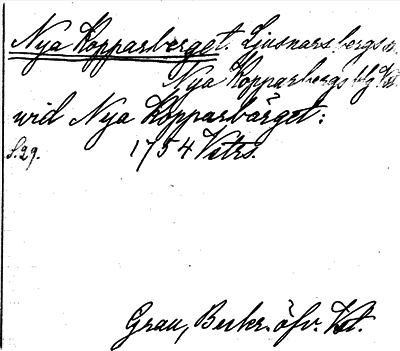 Nya Kopparberget. Ljusnarsbergs s.
Nya Kopparbergs bg
wid Nya Kopparbärget:
S. 29. 1754 Vstrs.
Grau, Beskr. öfv. Vst.